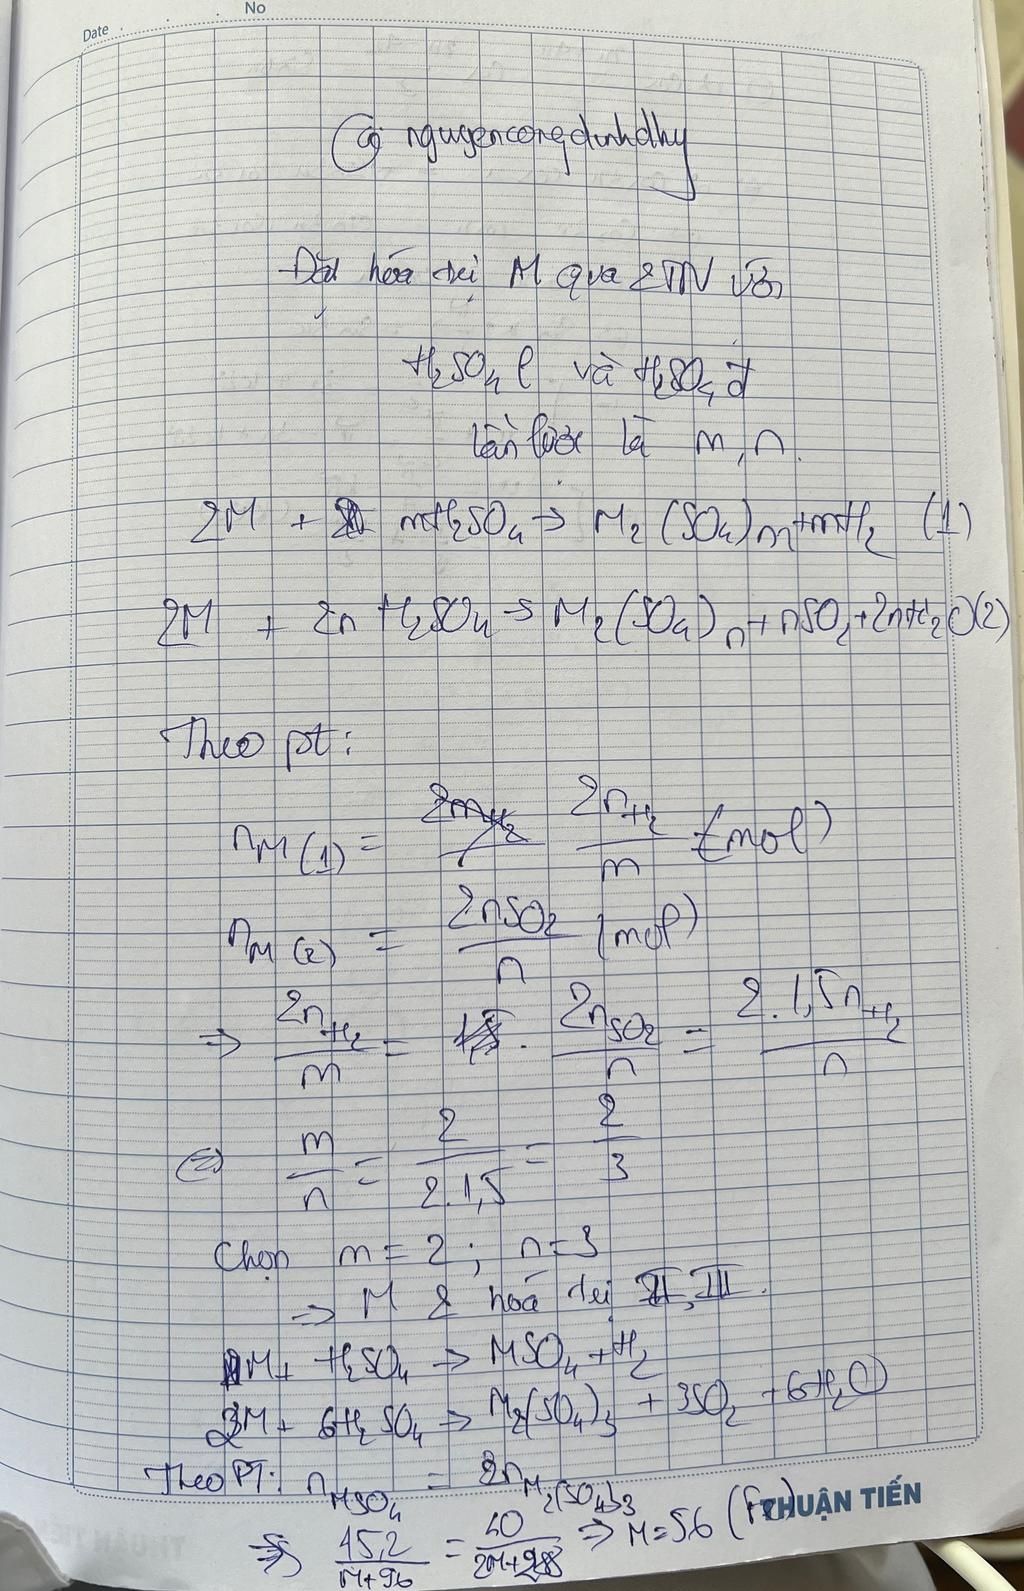 Date No
@ nguyencongdinhdhy
Đặt hóa trị M qua 2TN với
H₂SO₄ l và H₂SO₄ đ
lần lượt là m, n.
2M + mH₂SO₄ → M₂(SO₄)m + mH₂ (1)
2M + 2nH₂SO₄ → M₂(SO₄)n + nSO₂ + 2nH₂O (2)
Theo pt:
nM(1) = 2nH₂/m (mol)
nM(2) = 2nSO₂/n (mol)
⇒ 2nH₂/m = 2nSO₂/n = 2.1,5nH₂/n
⇔ m/n = 2/2.1,5 = 2/3
Chọn m = 2 ; n = 3
⇒ M 2 hoá trị II, III.
M + H₂SO₄ → MSO₄ + H₂
2M + 6H₂SO₄ → M₂(SO₄)₃ + 3SO₂ + 6H₂O
Theo PT: nMSO₄ = 2nM₂(SO₄)₃
⇒ 15,2/M+96 = 40/2M+288 ⇒ M = 56 (Fe)
THUẬN TIẾN